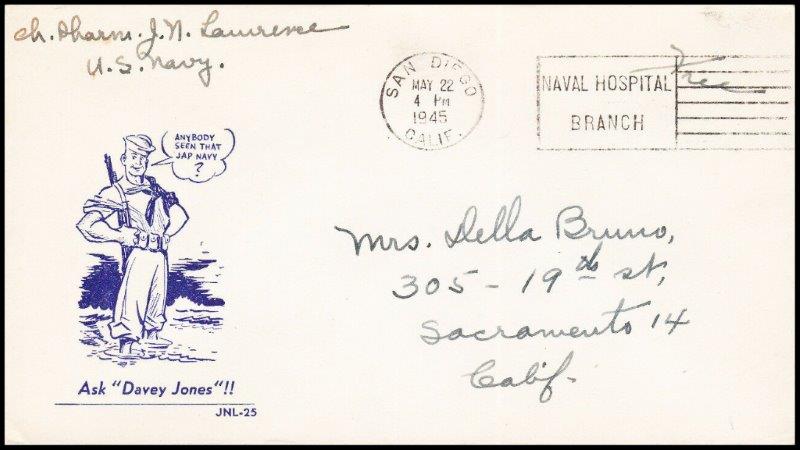 Ch. Pharm. J. N. Lawrence
U. S. Navy.
SAN DIEGO
MAY 22
4 PM
1945
CALIF.
Free
NAVAL HOSPITAL
BRANCH
ANYBODY
SEEN THAT
JAP NAVY
?
Mrs. Della Bruno,
305 - 19th st,
Sacramento 14
Calif.
Ask "Davey Jones"!!
JNL-25